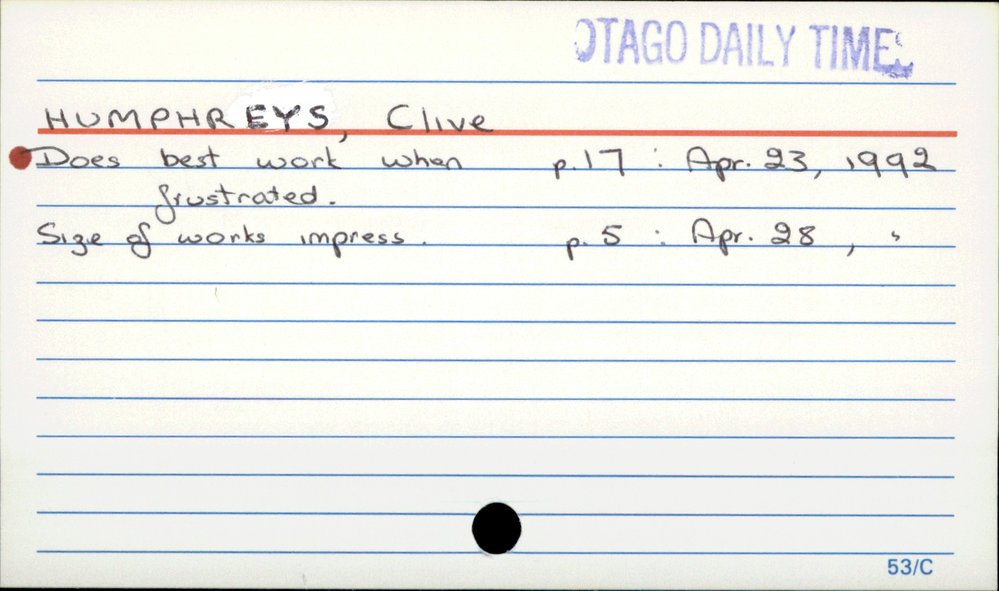 OTAGO DAILY TIMES
HUMPHREYS, Clive
Does best work when p.17 : Apr. 23, 1992
frustrated.
Size of works impress. p. 5 : Apr. 28, "
53/C